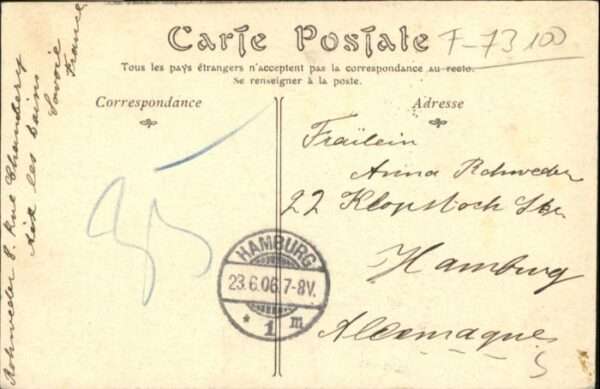 Carte Postale
F-73100
Tous les pays étrangers n'acceptent pas la correspondance au recto.
Se renseigner à la poste.
Correspondance
Adresse
Rohweder 8. Rue Chambery
Aix les bains
Savoie
France
Fräulein
Anna Rohweder
22 Klopstock Str.
Hamburg
Allemagne
HAMBURG
23.6.06.7-8V.
* 1 m